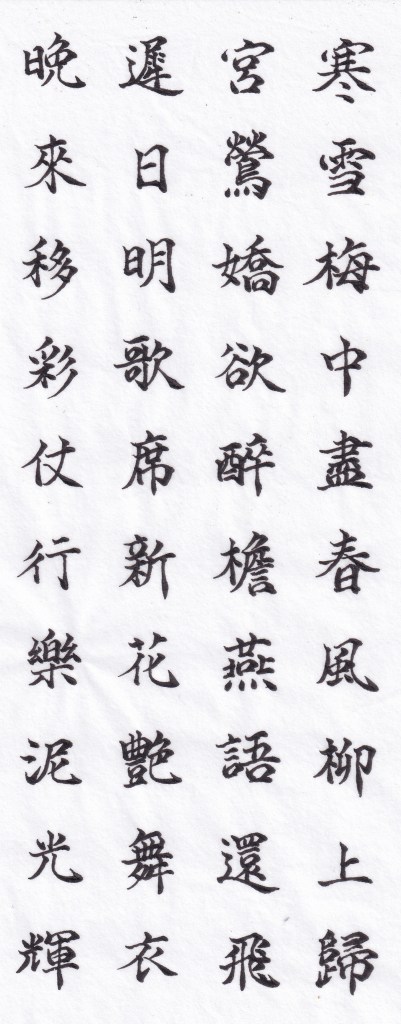 寒雪梅中盡春風柳上歸
宮鶯嬌欲醉檐燕語還飛
遲日明歌席新花艷舞衣
晚來移彩仗行樂泥光輝